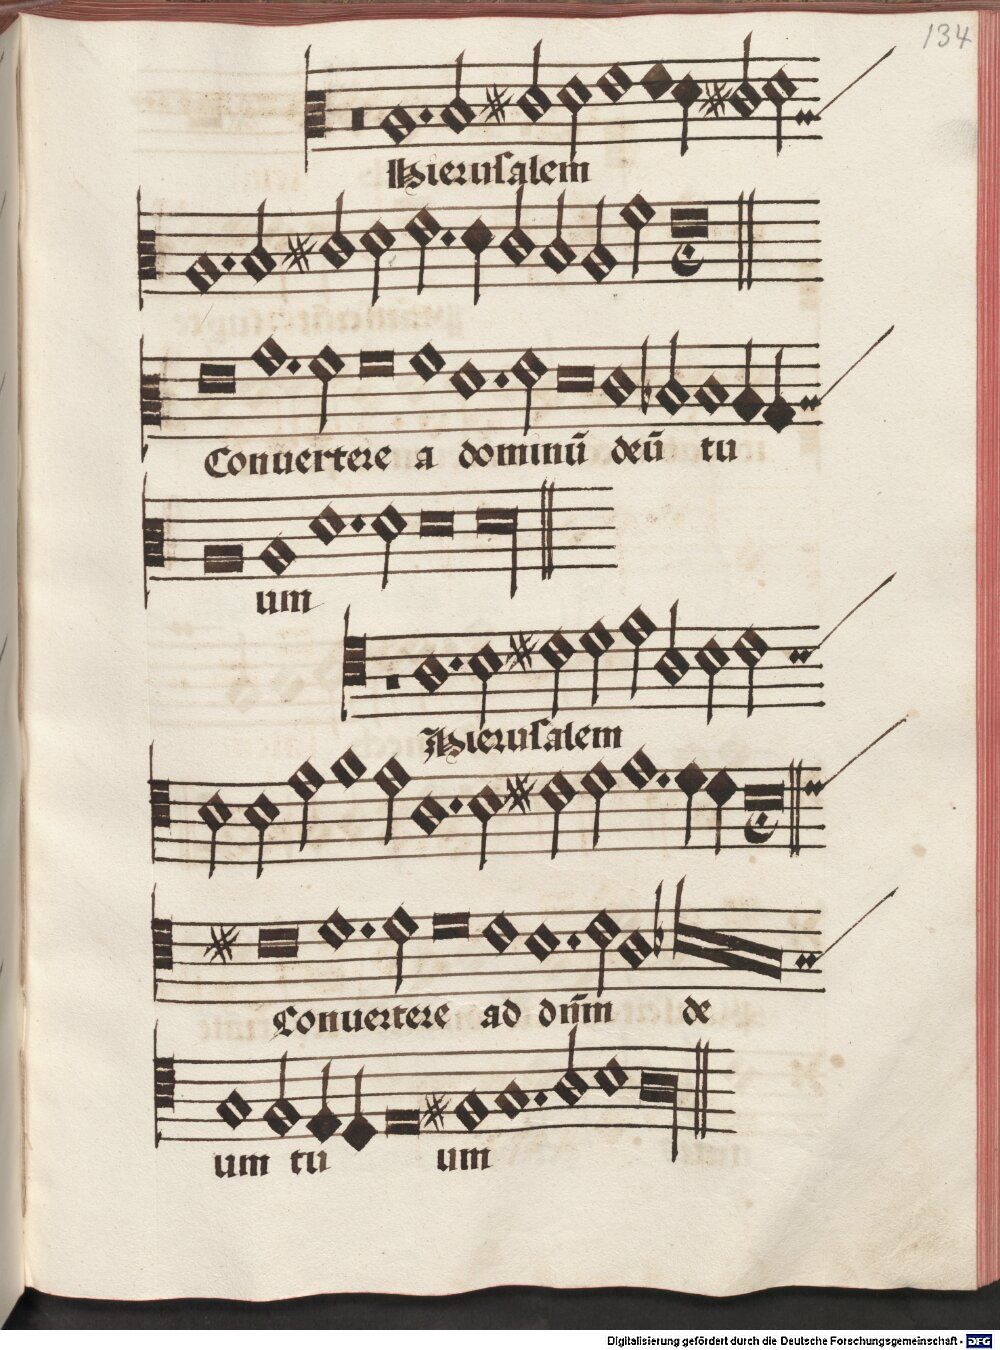 134
Hierusalem
Conuertere a dominū deū tu
um
Hierusalem
Conuertere ad dn̄m de
um tu um
Digitalisierung gefördert durch die Deutsche Forschungsgemeinschaft - DFG